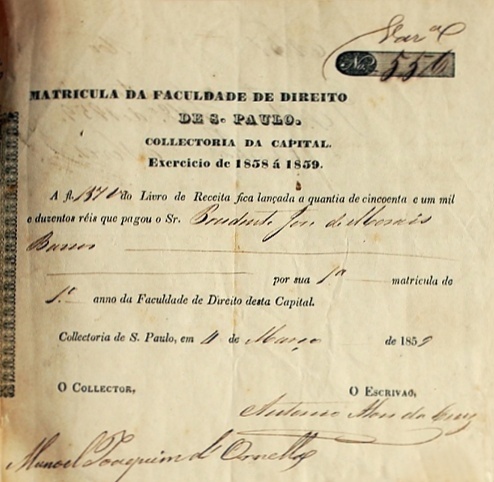 Nº 556
MATRICULA DA FACULDADE DE DIREITO
DE S. PAULO.
COLLECTORIA DA CAPITAL.
Exercicio de 1858 á 1859.
A fl. do Livro de Receita fica lançada a quantia de cincoenta e um mil
e duzentos réis que pagou o Sr. Prudente José de Moraes
Barros
por sua 1ª matricula do
1º anno da Faculdade de Direito desta Capital.
Collectoria de S. Paulo, em 4 de Março de 1859
O COLLECTOR,
O ESCRIVAÕ,
Antonio da Cruz
Manoel Joaquim d'Ornellas